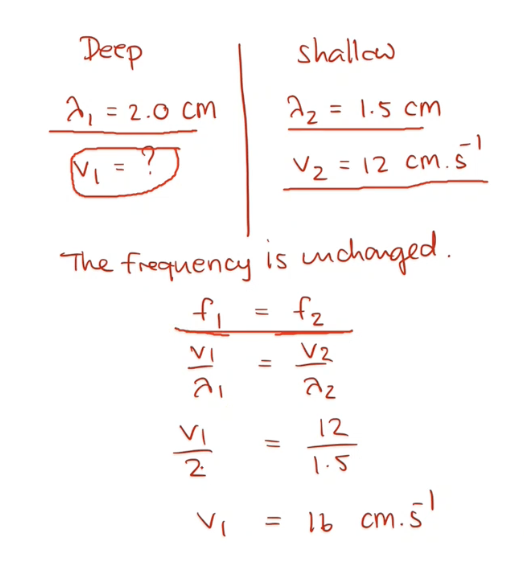 Deep
λ₁ = 2.0 cm
v₁ = ?
shallow
λ₂ = 1.5 cm
v₂ = 12 cm.s⁻¹
The frequency is unchanged.
f₁ = f₂
v₁/λ₁ = v₂/λ₂
v₁/2. = 12/1.5
v₁ = 16 cm.s⁻¹